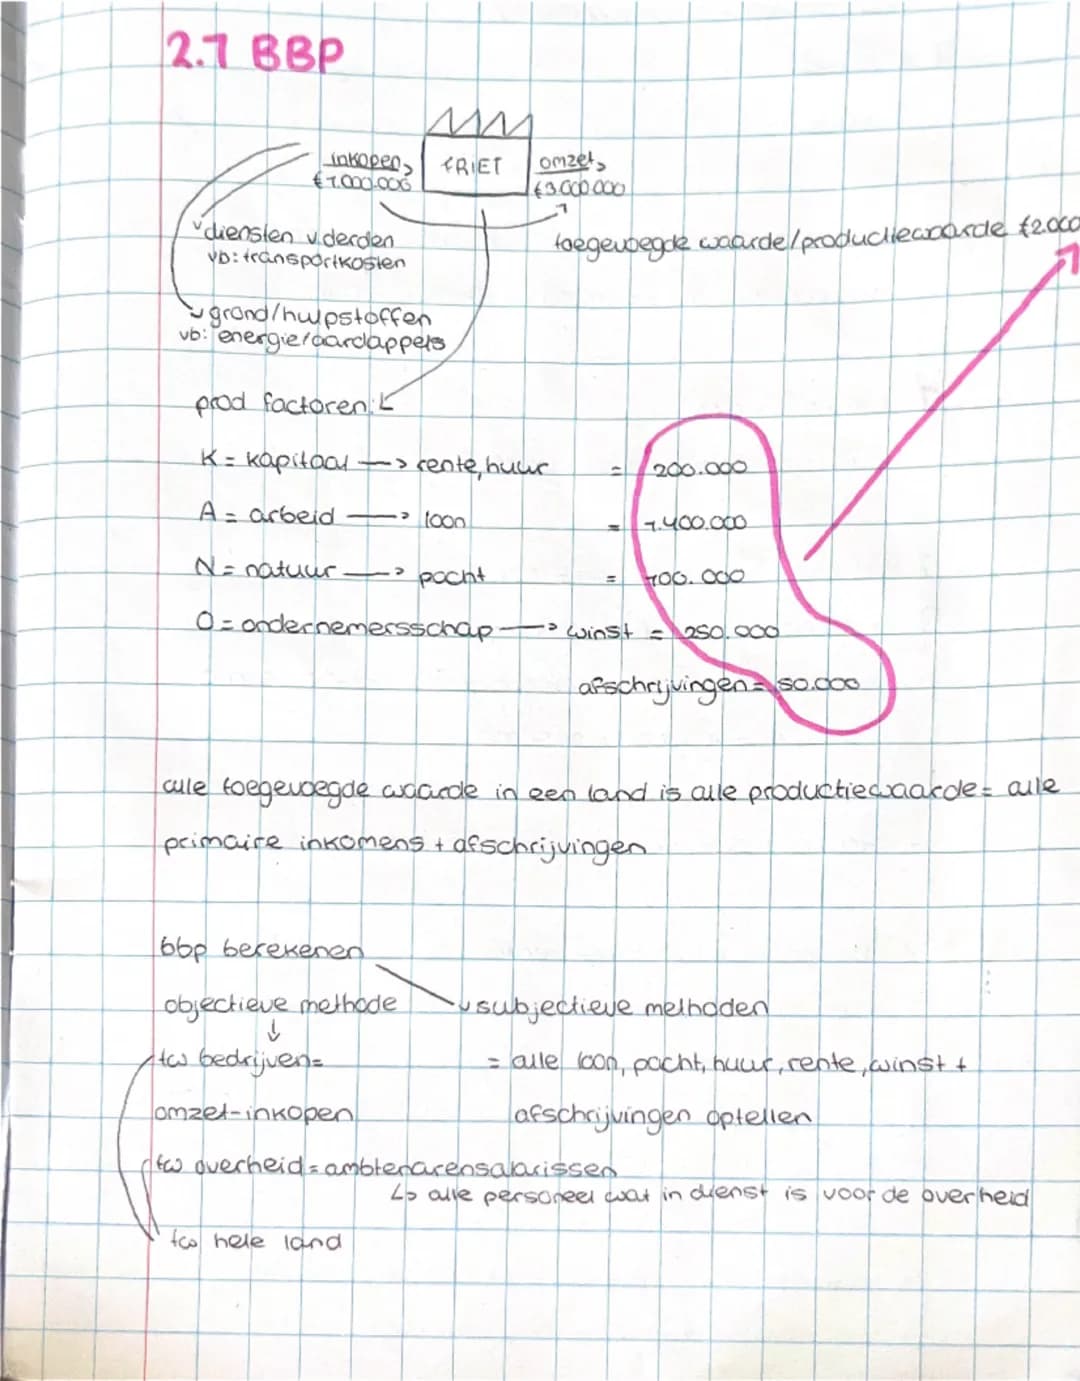 2.7 BBP
inkopen
€1.000.000
FRIET
omzet
€3.000.000
toegevoegde waarde/productiewaarde €2.000
diensten v derden
vb: transportkosten
grond/hulpstoffen
vb: energie/aardappels
prod factoren:
K = kapitaal → rente, huur = 200.000
A = arbeid → loon = 1.400.000
N = natuur → pacht = 100.000
O = ondernemersschap → winst = 250.000
afschrijvingen = 50.000
alle toegevoegde waarde in een land is alle productiewaarde = alle
primaire inkomens + afschrijvingen
bbp berekenen
objectieve methode
subjectieve methoden
↓
tw bedrijven =
= alle loon, pacht, huur, rente, winst +
omzet-inkopen
afschrijvingen optellen
tw overheid = ambtenarensalarissen
↳ alle personeel wat in dienst is voor de overheid
tw hele land